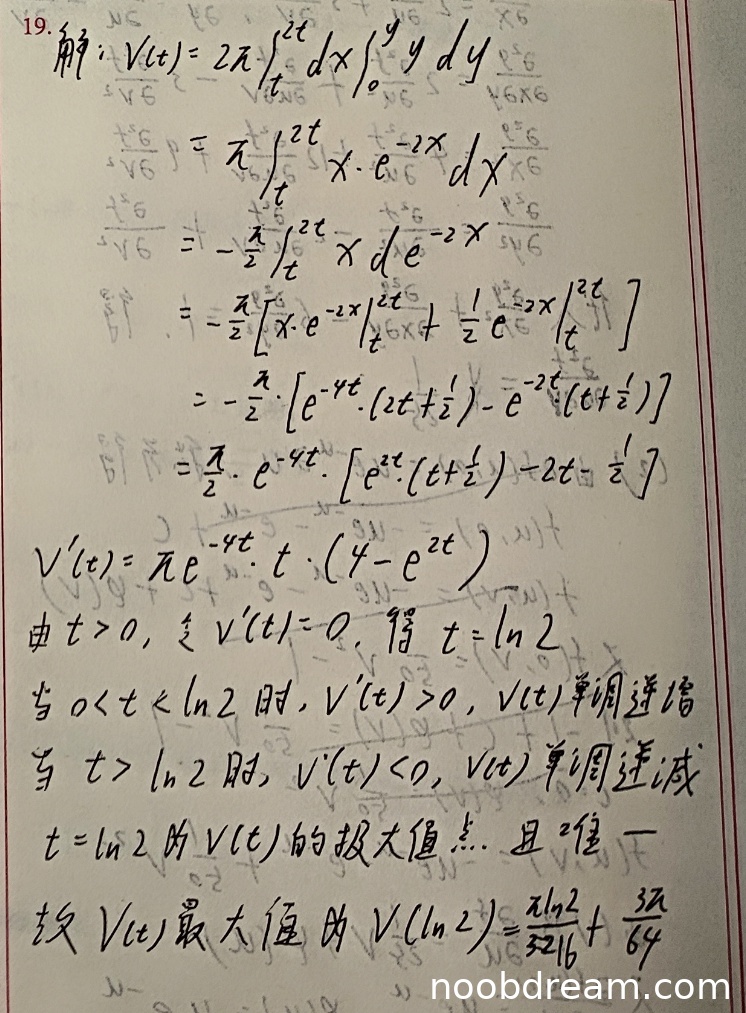 19.
解: V(t) = 2π∫_t^{2t} dx ∫_0^y y dy
= π∫_t^{2t} x·e^{-2x} dx
= -π/2 ∫_t^{2t} x de^{-2x}
= -π/2 [x·e^{-2x}|_t^{2t} + 1/2 e^{-2x}|_t^{2t}]
= -π/2·[e^{-4t}·(2t+1/2) - e^{-2t}·(t+1/2)]
= π/2·e^{-4t}·[e^{2t}·(t+1/2) - 2t - 1/2]
V'(t) = πe^{-4t}·t·(4-e^{2t})
由 t>0, 令 V'(t)=0, 得 t=ln2
当 0<t<ln2 时, V'(t)>0, V(t)单调递增
当 t>ln2 时, V'(t)<0, V(t)单调递减
t=ln2 为 V(t)的极大值点. 且唯一
故 V(t)最大值为 V(ln2) = πln2/16 + 3π/64
noobdream.com